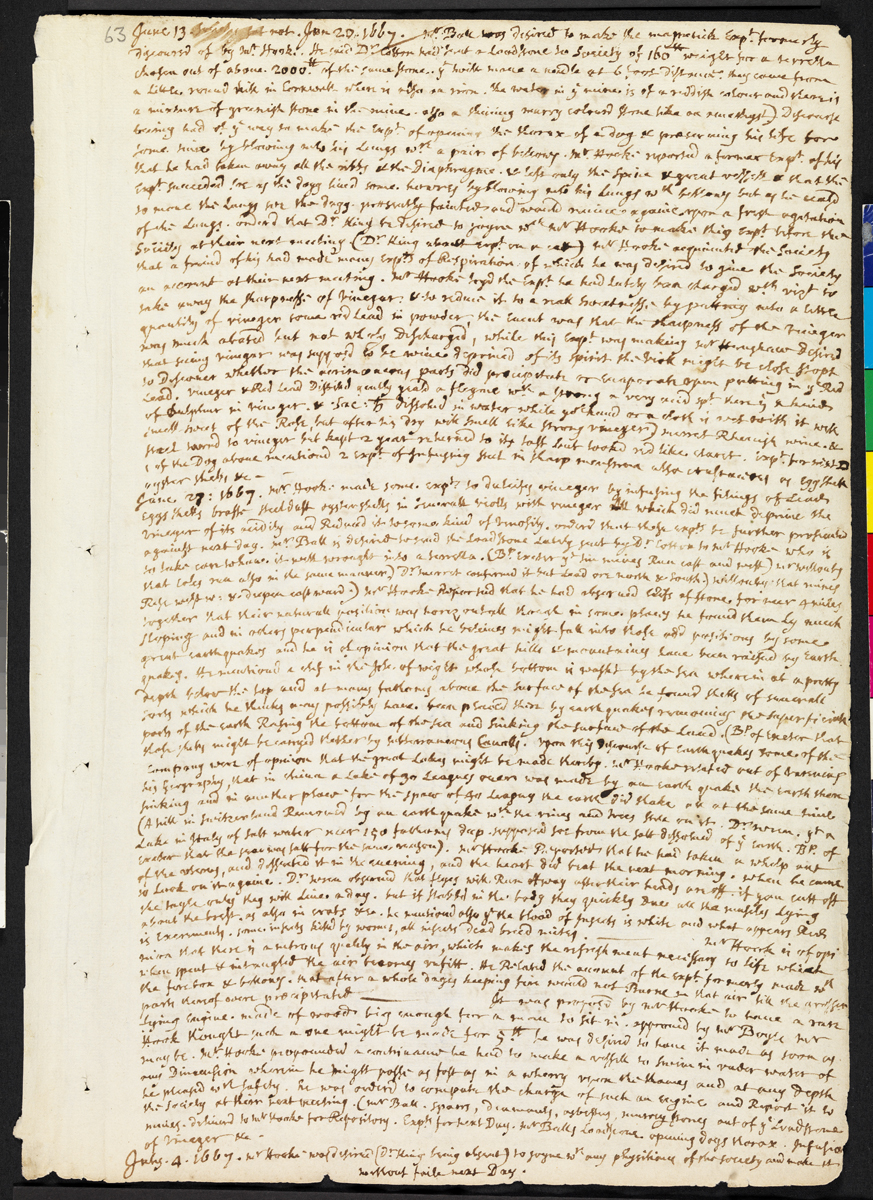 63 June 13 not. Jun 20. 1667. Mr. Ball was desired to make the magnetick Expt. formerly
discoursd of by Mr. Hook. He said Dr. Cotton had sent a Loadstone to Society of 160 ## weight for a terrella
chosen out of above. 2000 ## of the same stone. yt will moue a needle at 6 foot distance. they came from
a Little round hill in Cornwall where is also an iron. the water in ye mine is of a reddish colour and there is
a mixture of greenish stone in the mine. also a shining murry coloured stone like an amethyst) Discourse
being had of ye way to make the Expt. of opening the thorax of a dog & preserving his life for
some time by blowing into his Lungs wth a pair of bellows. Mr. Hooke reported a former Expt. of his
that he had taken away all the ribbs & the Diaphragme. & left only the Spine & great vessells & that the
Expt succeeded soe as the dogg lived some. howers by blowing into his Lungs wth bellows but as he ceasd
to moue the Lungs soe the dogg. presently fainted and would reuiue againe upon a fresh agitation
of the Lungs. orderd that Dr. King be desired to joyne wth Mr. Hooke to make this Expt before the
Society at their next meeting (Dr. King about expt. on a cat) Mr. Hooke acquainted the Society
that a freind of his had made many Expts of Respiration of which he was desired to giue the Society
an account at their next meeting. Mr Hooke tryd the Expt. he had Lately been charged wth. vizt to
take away the sharpnesse of vinegar: & to reduce it to a reall sweetnesse by putting into a little
quantity of vineger some red Lead in powder the euent was that the sharpness of the vineger
was much abated but not wholy Discharged, while this Expt was making Mr Henshaw desird
that seeing vinegar was supposd to be wine deprived of its spirit the viol might be close stopt
to Discouer whether the acrimonious parts did precipitate or Euaporate upon putting in ye Red
Lead. vineger & Red Lead Distilld gently yeald a flegme wth a strong & very acid spt. there is
of Sulphur in vinegar. & Sac: ♄ dissolud in water while ye hand or a cloth is wet with it will
smell sweet of the Rose, but after his dry will smell like strong vineger) Merret Rhenish wine. &
steel turnd to vineger but kept 2 year returned to its tast but lookd red like claret. Expt. for next D
: of the Dog above mentiond 2 Expt. of Infusing steel in sharp menstrua also Egg shells
oyster shells &c –
June. 27: 1667. Mr. Hooke made some. Expt. to dulcify vineger by infusing the filings of Lead
Eggshells brasse steel dust oystershells in severall violls with vineger all which did much deprive the
vineger of its acidity and Reduced it to some kind of vinosity. orderd that these Expts be further prosecuted
against next day. Mr. Ball is desired to send the Loadstone Lately sent by Dr. Cotton to Mr Hooke who is
to take care to haue. it well wrought into a terrella. (Bp. Exeter yt tin mines Run east and west) Mr willouby
that coles run also in the same manner) Dr. merret confirmd it but Lead ore north & South) willouby that mines
Rise westw: & deepen eastward.) Mr Hooke Reported that he had obserud cliffs of stone. for near 4 miles
together that their naturall position was horizontall though in some. places he found them by much
sloping and in others perpendicular which he beleives might fall into those odd positions by some
great earthquakes and he is of opinion that the great hills & mountaines haue been raised by Earth
quakes. He mentioned a clif in the Isle. of wight whose bottom is washt by the Sea wherein at a pretty
Depth below the top and at many fathoms above the surface of the sea he found shells of severall
sorts which he thinks may possibly haue. been placed there by earth quakes remoueing the superficiall
parts of the earth Raising the bottom of the sea and sinking the surface of the Land. (Bp. of Exeter that
these shells might be carryed thether by subterraneous Canalls. upon this discourse of Earthquakes some. of the
company were of opinion that the great Lakes might be made thereby. Mr. Hooke related out of Varenius
his geography, that in china a Lake of 30 Leagues ouer was made by an earth quake the earth there
sinking and in another place for the space of 40 Leagues the earth did shake all at the same time
(A hill in switzerland Remoued by an earthquake wth the vines and trees still on it. Dr. Croun. yt a
Lake in Italy of salt water near 150 fathoms deep. supposed soe from the salt dissolued of ye Earth. BP. of
Exeter that the sea was salt for the same reason). Mr Hooke Reported that he had taken a whelp out
of the uterus, and dissected it in the euening, and the heart did beat the next morning. when he came
to Look on it againe. Dr. Croun obserud that flyes will Run away after their heads are off. if you cutt off
the tayle only they will Liue a day. but if stabbd in the. body they quickly Dye all the muscles lying
about the brest. as also in crabs &c. he mentioned also yt the blood of insects is white and what appears Red
is Excrements. some insects killd by worms, all insects dead breed mites. Mr Hook is of opi
nion that there is a nitrous quality in the air, which makes the refreshment necessary to Life which
when spent & intangled the air becomes unfitt. He Related the account of the Expt formerly made wth
the fox box & bellows. that after a whole dayes keeping fire would not Burne in that air till the
parts thereof were precipitated It was proposed by Mr Hooke to haue a rare
fying Engine. made of wood. big enough for a man to sit in. approued by Mr Boyle Mr
Hook thought such a one might be made for 5 ## he was desired to haue it made as soon as.
may be. Mr. Hooke propounded a contriuance he had to make a vessell to swim in under water of
any Dimension wherein he might passe as fast as in a wherry upon the Thames and at any depth
he pleased wth safety. He was orderd to compute the charge of such an engine and Report it to
the Society at their next meeting. (Mr. Ball. spars, diamants, asbestus, murry stones out of ye Loadstone
mines. delivered to Mr Hooke for Repository. Expts for next Day. Mr Balls Loadstone opening dogs thorax. Infusion
of vineger &c –
July. 4. 1667. Mr Hooke was desired (Dr. King being absent) to joyne wth any physitians of the society and make it
without faile next Day.